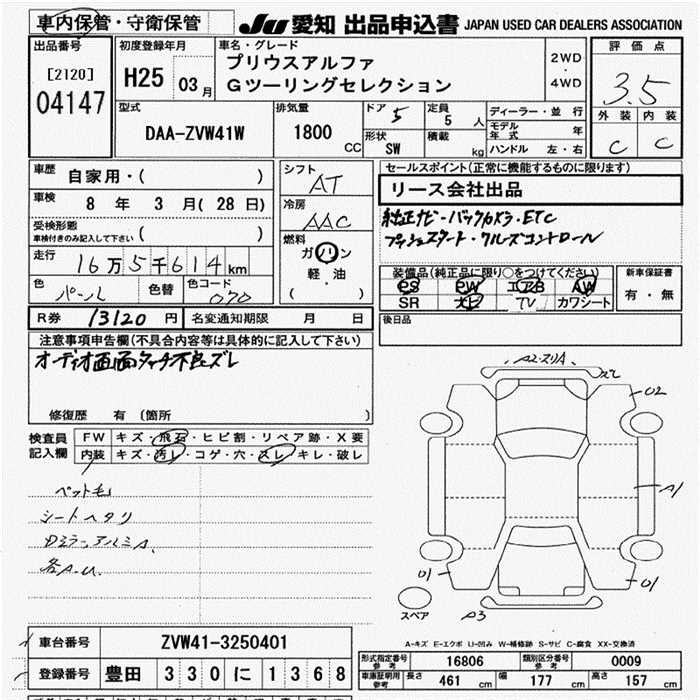 車内保管・守衛保管
JU 愛知 出品申込書 JAPAN USED CAR DEALERS ASSOCIATION
出品番号
[2120]
04147
初度登録年月
H25 03月
車名・グレード
プリウスアルファ
Gツーリングセレクション
2WD
・
4WD
評価点
3.5
外装 内装
C C
型式
DAA-ZVW41W
排気量
1800 CC
ドア 5
形状 SW
定員 5 人
積載 kg
ディーラー・並行
モデル年式 年
ハンドル 左・右
車歴 自家用・( )
車検 8年 3月(28日)
受検形態
車検付きのみ記入して下さい ( )
走行 16万5千614km
色 パール 色替 色コード 070
シフト AT
冷房 AAC
燃料 ガソリン
軽・油
( )
セールスポイント(正常に機能するものに限ります)
リース会社出品
純正ナビ・バックカメラ・ETC
プッシュスタート・クルーズコントロール
装備品(純正品に限り○をつけてください)
PS PW エアB AW
SR ナビ TV カワシート
新車保証書
有・無
R券 13120円 名変通知期限 月 日
後日品
注意事項申告欄(不具合内容等は具体的に記入して下さい)
オーディオ画面タッチ不良ズレ
修復歴 有 (箇所 )
検査員記入欄
FW キズ・飛石・ヒビ割・リペア跡・X要
内装 キズ・汚レ・コゲ・穴・スレ・キレ・破レ
ペット毛
シートヘタリ
Dミラー、アルミA.
各A.U.
A2.スリA
02
A1
01
01
スペア
A3
A-キズ E-エクボ U-凹み W-補修跡 S-サビ C-腐食 XX-交換済
車台番号 ZVW41-3250401
登録番号 豊田 330 に 1368
形式指定番号 参考 16806 類別区分番号 参考 0009
車庫証明用 参考 長さ 461 cm 幅 177 cm 高さ 157 cm